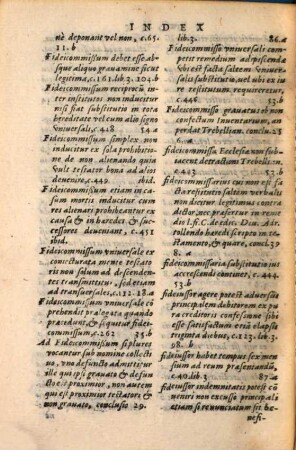 INDEX
nè deponant vel non, c.65.
11.b
Fideicommissum debet esse absque aliquo grauamine sicut
legitima, c.161.lib.3.104.b
Fideicommissum reciprocū inter institutos non inducitur
nisi fiat substitutio in tota
hæreditate vel cum alio signo
vniuersali, c.448 54.a
Fideicommissum simplex non
inducitur ex sola prohibitione de non alienando quia
vult testator bona ad alios
deuenire, c.449 ibid.
Fideicommissum etiam in casum mortis inducitur cum
res alienari prohibentur ex
causa, & in hæredes & successores deueniant, c.451
ibid.
Fideicommissum vniuersale ex
coniecturata mente testatoris non solum ad descendentes transmittitur, sed etiam
ad transuersales, c.122.18.a
Fideicommissum vniuersale cō
prehendit prælegata quando
præcedunt, & sequitur fideicommissum, c.262 33.b
Ad Fideicommissum si plures
vocantur sub nomine collectiuo, vno defuncto admittitur
ille qui est gravato & defuncto est proximior, non autem
qui est proximior testatore &
non grauato, conclusio 29.
lib.3. 86.a
Fideicommisso vniuersali competit remedium adipiscendæ
Obiecta facta saltem vniuersalis substitutio, vel ubi ex re
restitutum requireretur,
c.448. 53.b
Fideicommisso grauatus et non
conficiens Inuentarium, amperdat Trebellian. conclu.25
6.a
fideicommisso Ecclesia non subiacet detractioni Trebellian.
c.443. 53.b
fideicommissarius cui non est facta restitutio saltem verbalis
non dicitur legitimus contradictor, nec præsertim in remedis l.F.C. de edic. Diui Adr.
tollendo hæredi scripto in testamento, & quare, concl.39
8.a
fideicommissaria substitutio iut
accessionel continet, c.444.
53.b
fideiussor agere potest aduersus
principalem debitorem ex ca
pura creditori confessione sibi
esse satisfactum etiā elapsis
triginta diebus, c.123.lib.3.
98.b
fideiussor habet tempus sex men
sium ad reum præsentandū,
c.40.lib.3 87.a
fideiussor indemnitatis potest cō
ueniri non excusso principali
etiam si renunciatum sit be
nefi-